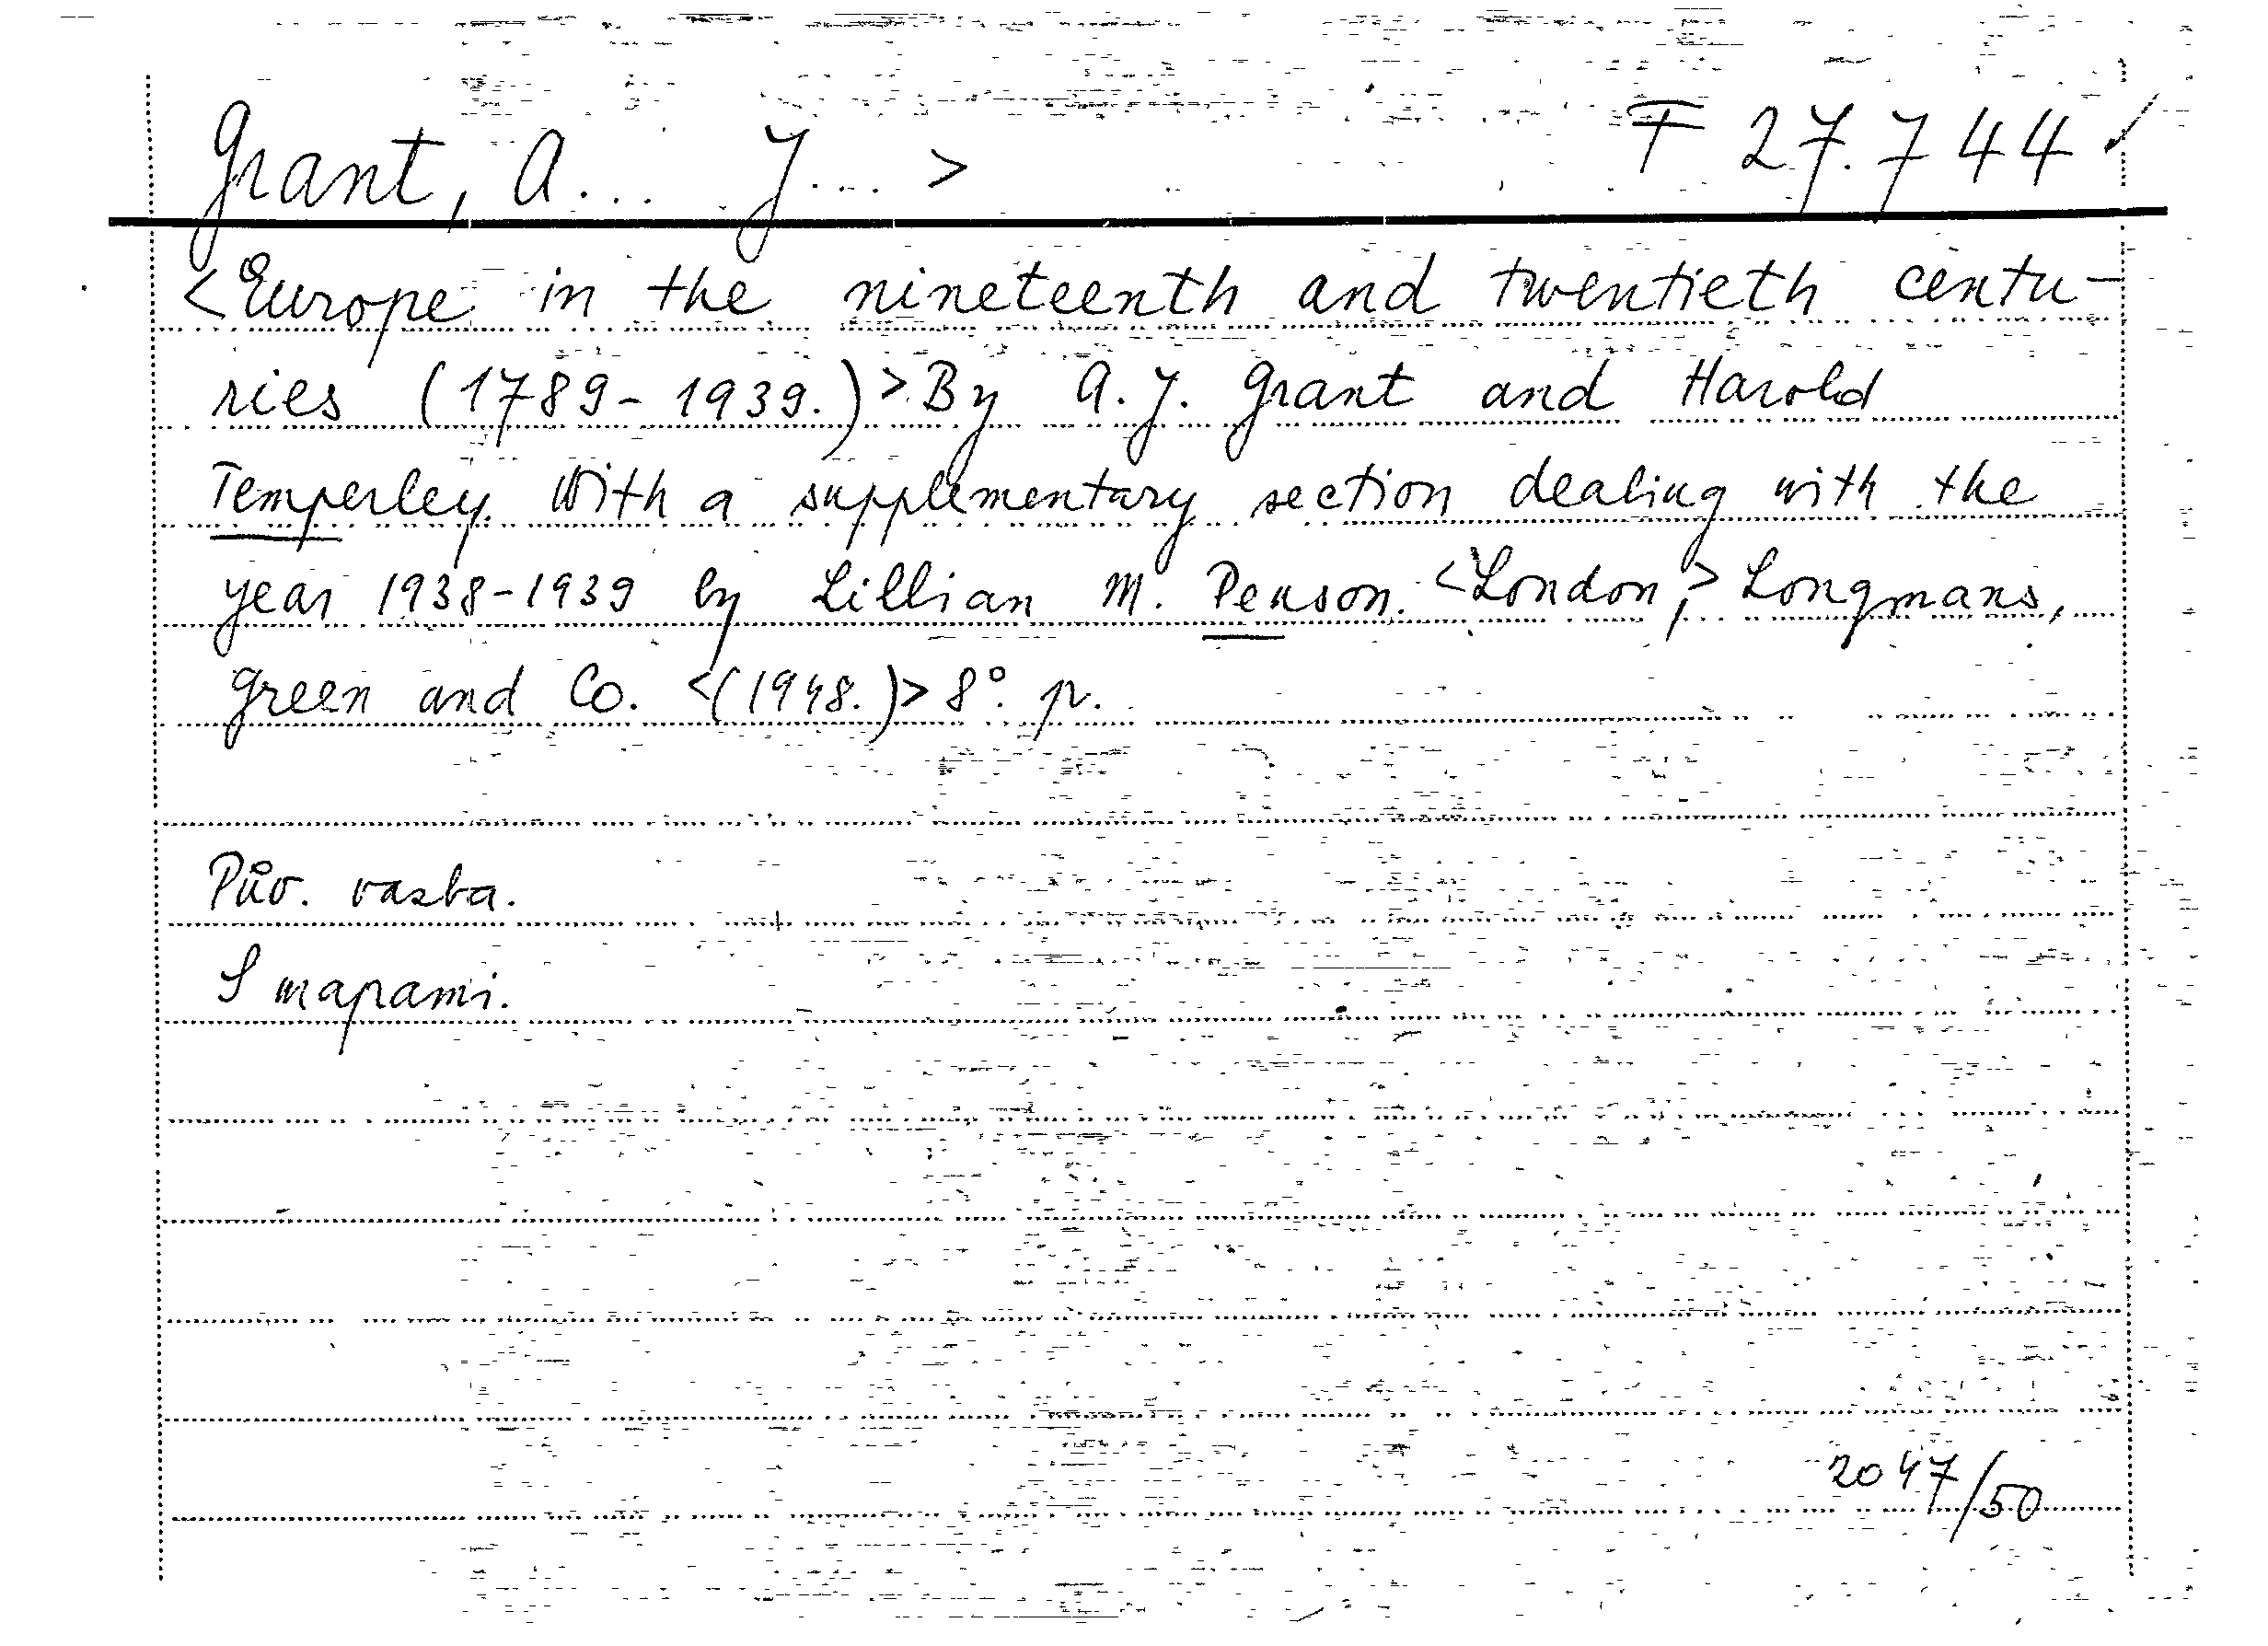 Grant, A... J... >
F 27.744 ✓
<Europe in the nineteenth and twentieth centu-
ries (1789-1939.)> By A. J. Grant and Harold
Temperley. With a supplementary section dealing with the
year 1938-1939 by Lillian M. Penson. <London,> Longmans,
Green and Co. <(1948.)> 8°. p.
Pův. vazba.
S mapami.
2047/50